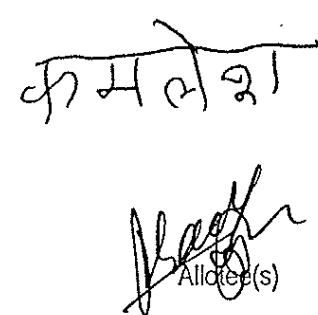 कमलेश
Allotee(s)